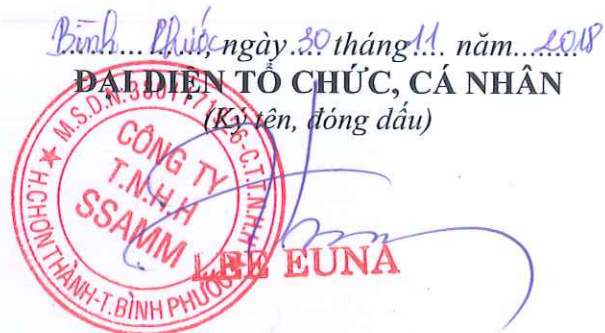 Bình Phước, ngày 30 tháng 11 năm 2018
ĐẠI DIỆN TỔ CHỨC, CÁ NHÂN
(Ký tên, đóng dấu)
CÔNG TY
T.N.H.H
SSAMM
H.CHƠN THÀNH-T.BÌNH PHƯỚC
LEE EUNA